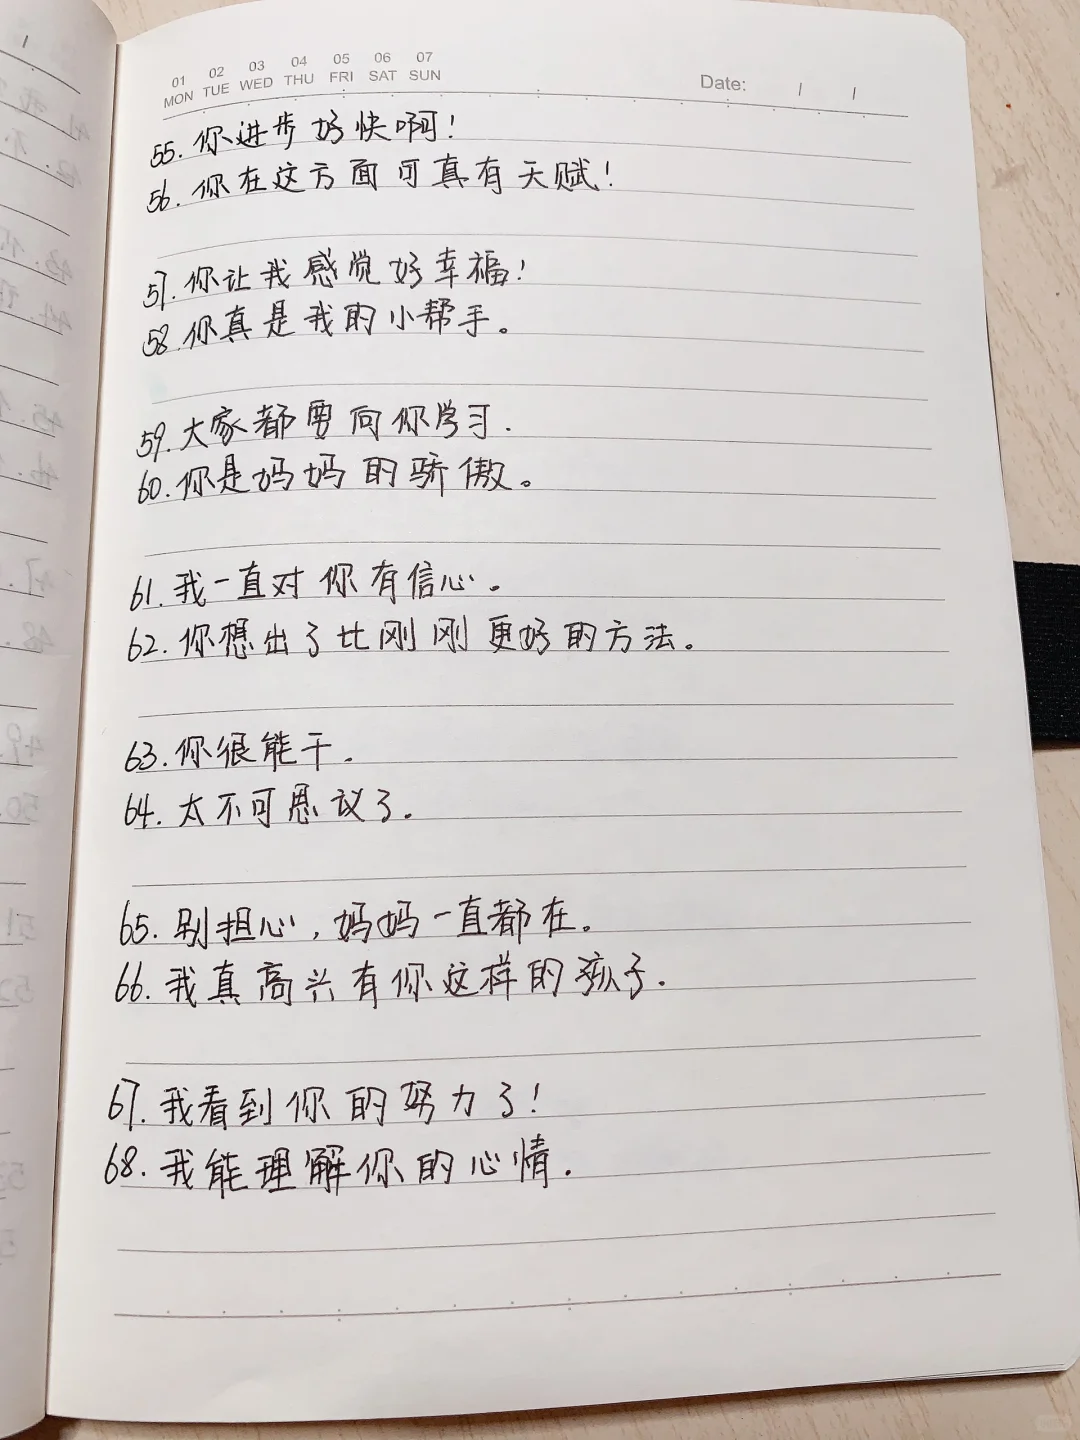 01 02 03 04 05 06 07
MON TUE WED THU FRI SAT SUN
Date: / /
55. 你进步好快啊!
56. 你在这方面可真有天赋!
57. 你让我感觉好幸福!
58. 你真是我的小帮手。
59. 大家都要向你学习.
60. 你是妈妈的骄傲。
61. 我一直对你有信心。
62. 你想出了比刚刚更好的方法。
63. 你很能干.
64. 太不可思议了.
65. 别担心,妈妈一直都在。
66. 我真高兴有你这样的孩子.
67. 我看到你的努力了!
68. 我能理解你的心情.